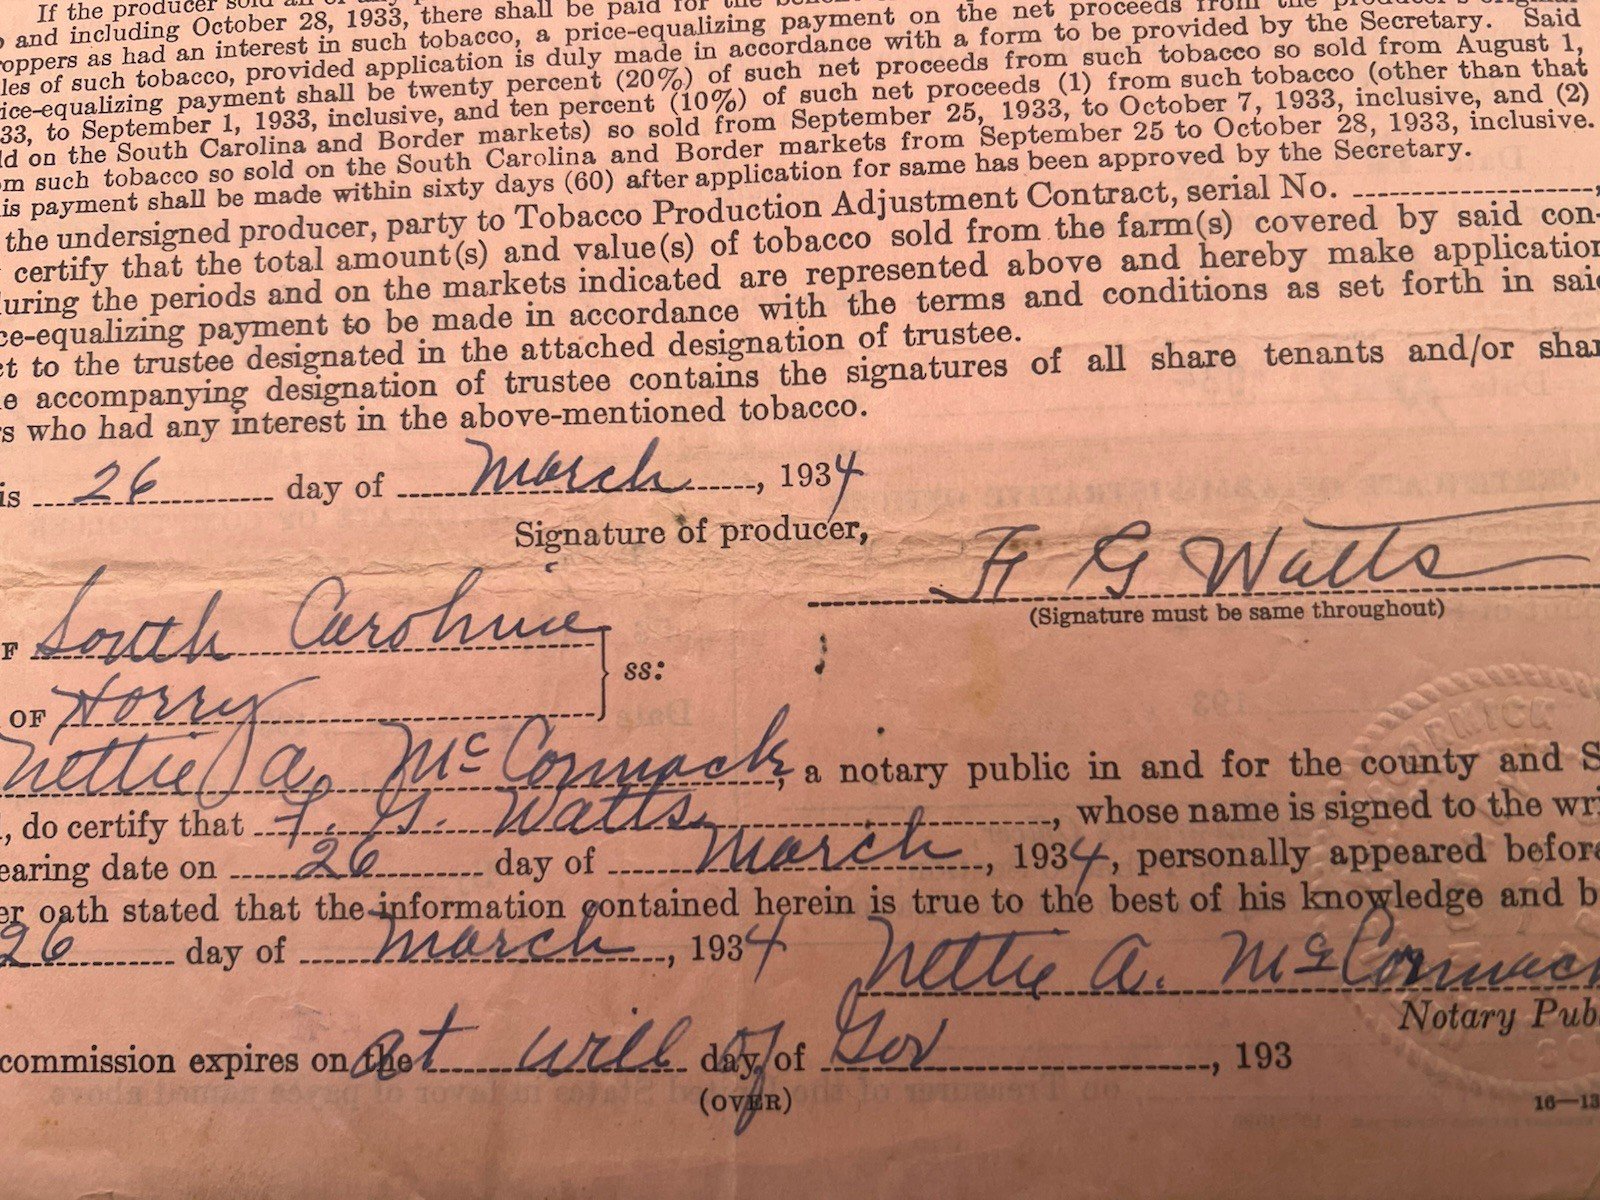 If the producer sold all or any
and including October 28, 1933, there shall be paid for the benefit of
oppers as had an interest in such tobacco, a price-equalizing payment on the net proceeds from the producer's original
les of such tobacco, provided application is duly made in accordance with a form to be provided by the Secretary. Said
ice-equalizing payment shall be twenty percent (20%) of such net proceeds from such tobacco so sold from August 1,
33, to September 1, 1933, inclusive, and ten percent (10%) of such net proceeds (1) from such tobacco (other than that
ld on the South Carolina and Border markets) so sold from September 25, 1933, to October 7, 1933, inclusive, and (2)
om such tobacco so sold on the South Carolina and Border markets from September 25 to October 28, 1933, inclusive.
is payment shall be made within sixty days (60) after application for same has been approved by the Secretary.
the undersigned producer, party to Tobacco Production Adjustment Contract, serial No. ,
certify that the total amount(s) and value(s) of tobacco sold from the farm(s) covered by said con-
during the periods and on the markets indicated are represented above and hereby make application
ce-equalizing payment to be made in accordance with the terms and conditions as set forth in said
ct to the trustee designated in the attached designation of trustee.
e accompanying designation of trustee contains the signatures of all share tenants and/or shar
s who had any interest in the above-mentioned tobacco.
is 26 day of March, 1934
Signature of producer, F G Watts
(Signature must be same throughout)
F South Carolina
ss:
OF Horry
Nettie A. McCormack, a notary public in and for the county and S
, do certify that F. G. Watts, whose name is signed to the wri
earing date on 26 day of March, 1934, personally appeared before
er oath stated that the information contained herein is true to the best of his knowledge and b
26 day of March, 1934
Nettie A. McCormack
Notary Pub
commission expires on the at will day of of Gov, 193
(OVER)
16—13